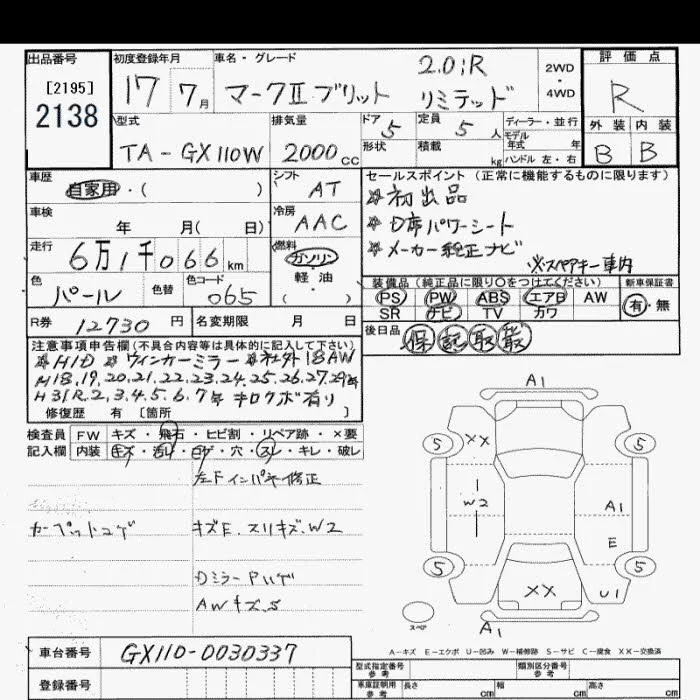 出品番号
[2195]
2138
初度登録年月
17 7月
車名・グレード
2.0iR
マークⅡブリット リミテッド
2WD
・
4WD
評価点
R
型式
TA-GX110W
排気量
2000cc
ドア
5
定員
5人
形状
積載
kg
ディーラー・並行
モデル
年式 年
ハンドル 左・右
外装 内装
B B
車歴
自家用・( )
シフト
AT
車検
年 月( 日)
冷房
AAC
走行
6万1千066km
燃料
ガソリン
軽・油
( )
色
パール
色替
色コード
065
R券
12730円
名変期限 月 日
セールスポイント(正常に機能するものに限ります)
☆初出品
☆D席パワーシート
☆メーカー純正ナビ
※スペアキー車内
装備品(純正品に限り○をつけてください)
PS PW ABS エアB AW
SR ナビ TV カワ
新車保証書
有・無
後日品
保 記 取
注意事項申告欄(不具合内容等は具体的に記入して下さい)
☆HID ☆ウィンカーミラー ☆社外18AW
H18,19,20,21,22,23,24,25,26,27,29年
H31R.2,3,4,5,6,7年キロクボ有り
修復歴 有 [箇所 ]
検査員
記入欄
FW キズ・飛石・ヒビ割・リペア跡・×要
内装 キズ・汚れ・コゲ・穴・スレ・キレ・破レ
左Fインパネ修正
カーペットコゲ
キズE.スリキズ.W2
DミラーPハゲ
AWキズ.S
A1
5 XX 5
W2
A1
E
5 XX U1 5
スペア
A1
A-キズ E-エクボ U-凹み W-補修跡 S-サビ C-腐食 XX-交換済
車台番号
GX110-0030337
登録番号
型式指定番号
参考
類別区分番号
参考
車庫証明用
参考
長さ cm 幅 cm 高さ cm